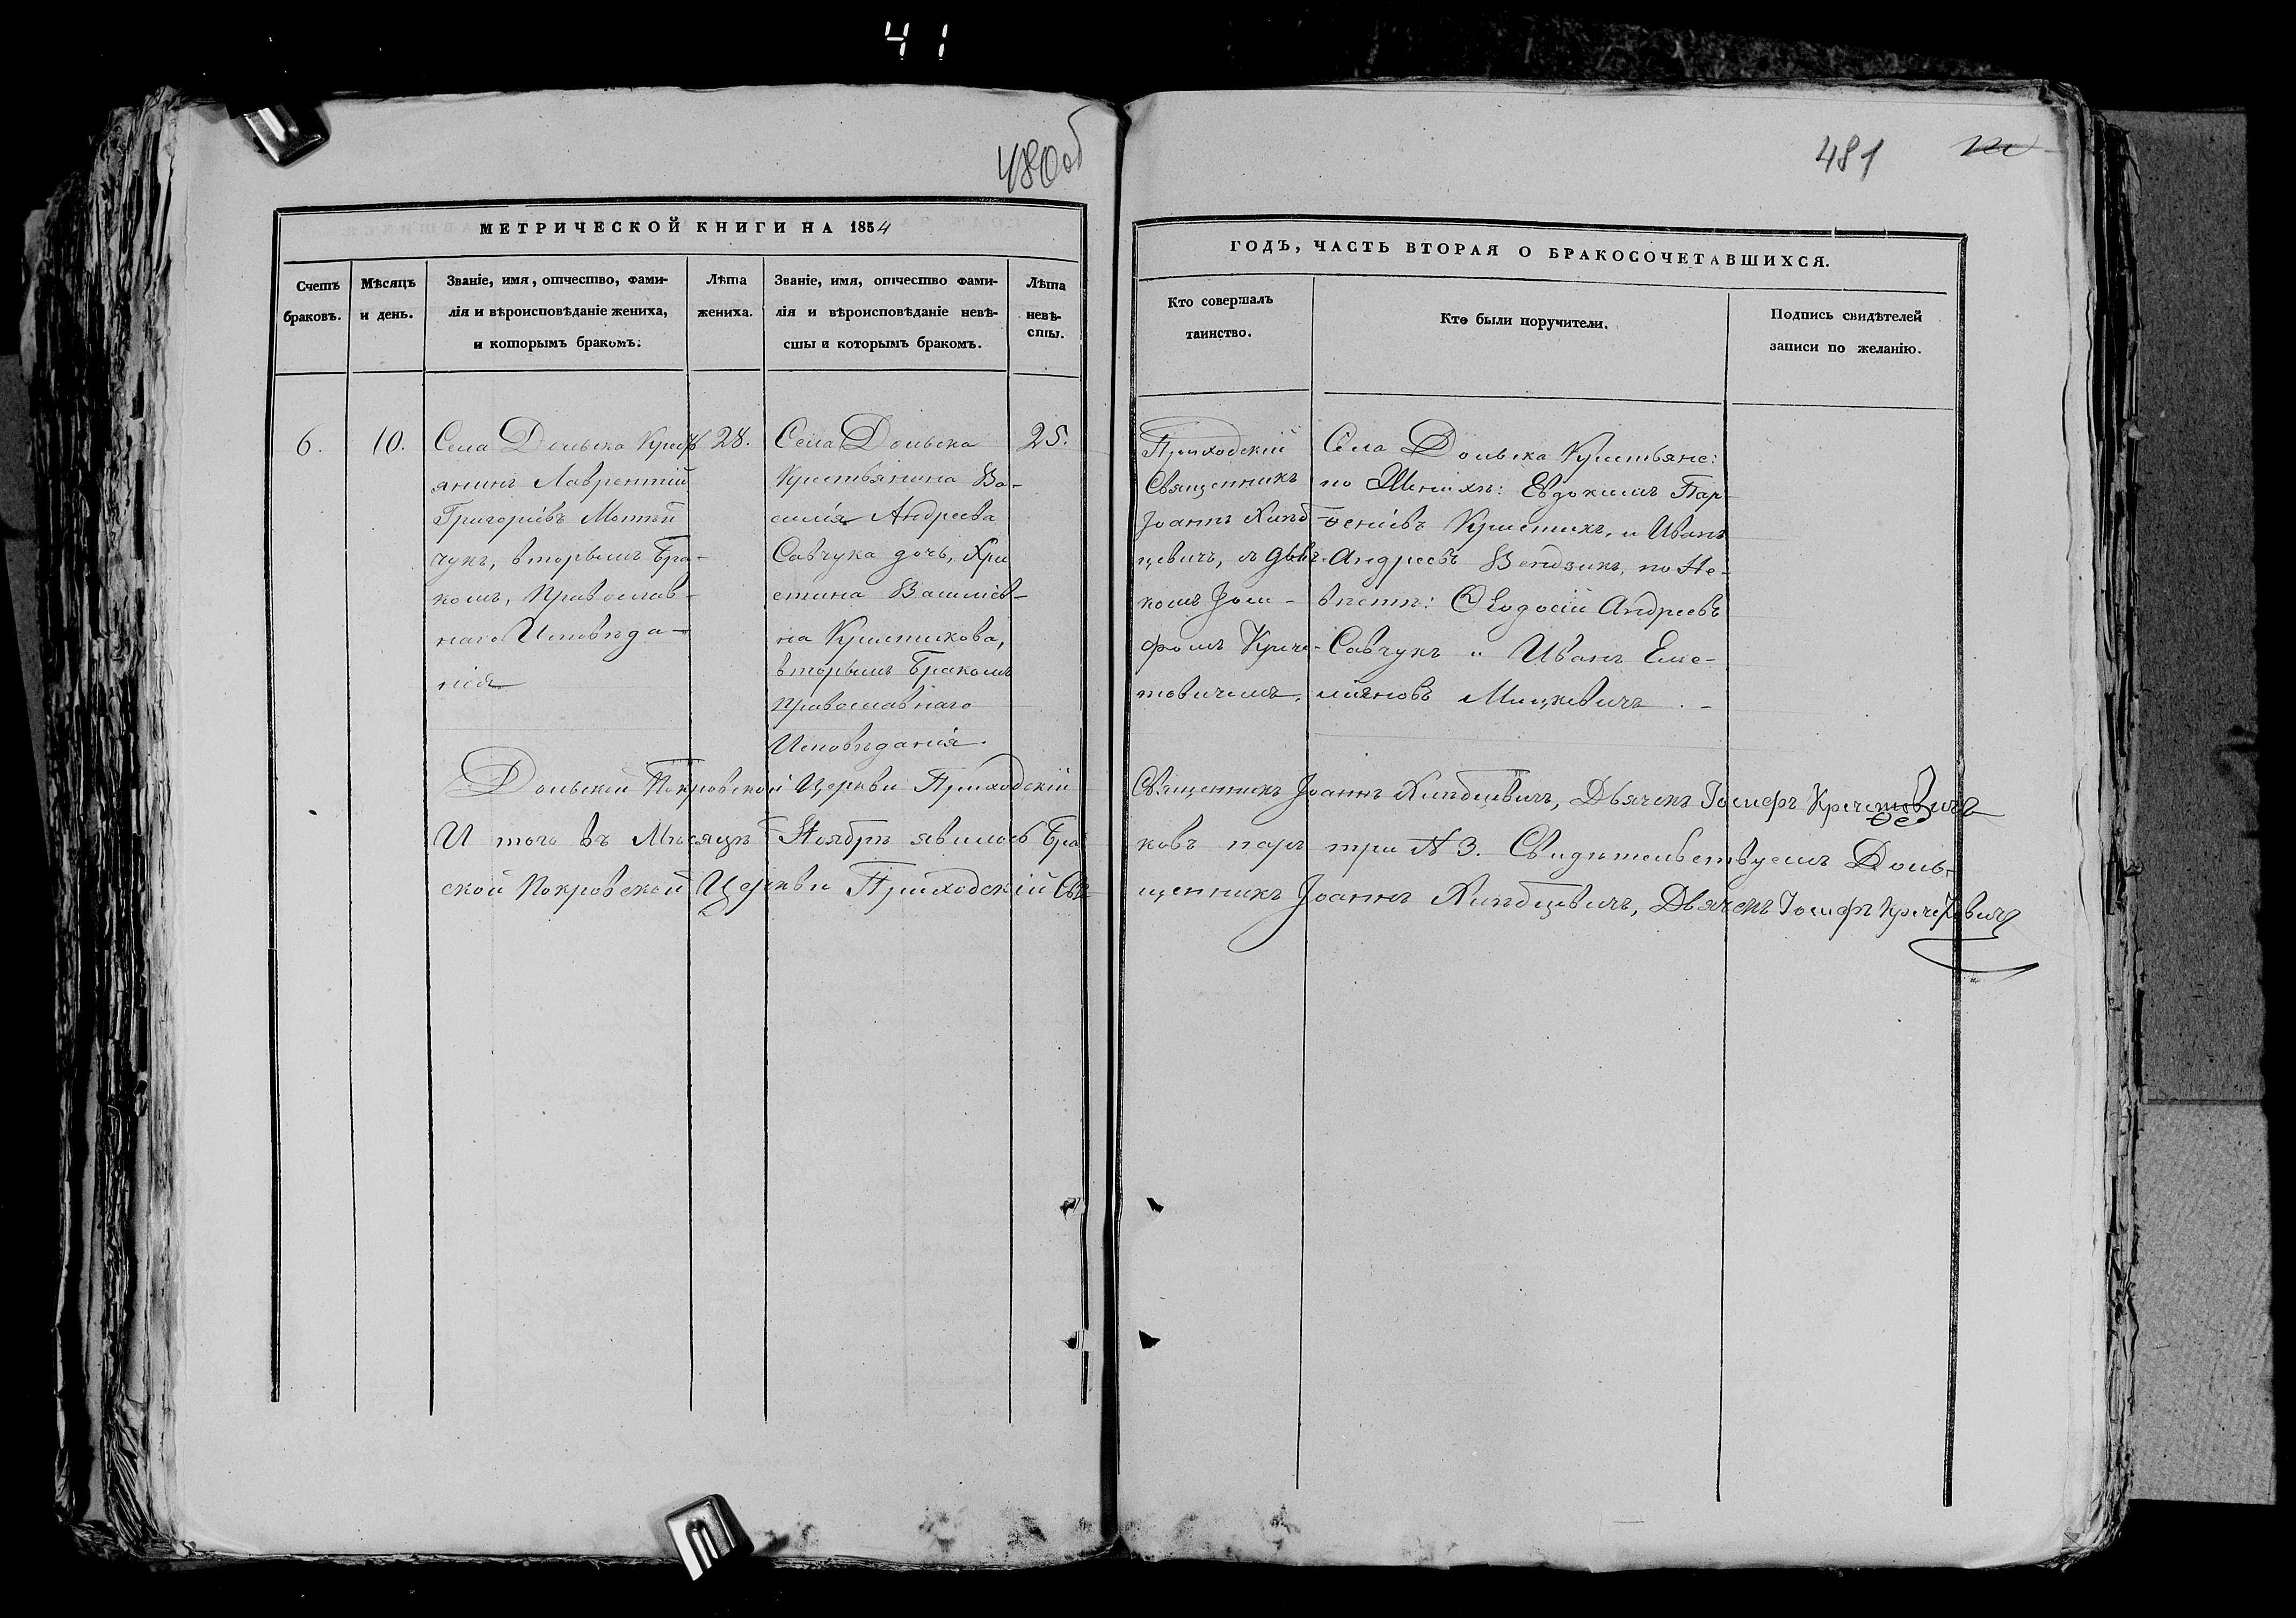 41
480об
481
МЕТРИЧЕСКОЙ КНИГИ НА 1854
Счетъ
браковъ.
Мѣсяцъ
и день.
Званіе, имя, отчество, фами-
лія и вѣроисповѣданіе жениха,
и которымъ бракомъ.
Лѣта
жениха.
Званіе, имя, отчество фами-
лія и вѣроисповѣданіе невѣ-
сты и которымъ бракомъ.
Лѣта
невѣ-
сты.
ГОДЪ, ЧАСТЬ ВТОРАЯ О БРАКОСОЧЕТАВШИХСЯ.
Кто совершалъ
таинство.
Кто были поручители.
Подпись свидѣтелей
записи по желанію.
6.
10.
Села Дольска Крест
янинъ Лаврентій
Григоріевъ
чукъ, вторымъ Бра-
комъ, Православ-
наго Исповѣда-
нія
28.
Села Дольска
Крестьянина Ва-
силія Андреева
Савчука дочь, Хри
стина Василіев-
на Кристикова,
вторымъ Бракомъ
Православнаго
Исповѣданія.
25.
Приходскій
Священникъ
Іоаннъ
цевичъ, съ дьяч
комъ Іоси-
фомъ Крече-
товичемъ.
Села Дольска Крестьяне:
по Женихѣ: Евдокимъ Пар-
ѳеніевъ Кристикъ, и Иванъ
Андреевъ Вендзикъ, по Не-
вѣстѣ: Ѳеодосій Андреевъ
Савчукъ и Иванъ Еме-
ліяновъ Мицкевичъ. -
Дольской Покровской Церкви Приходскій Священникъ Іоаннъ Дьячекъ Іосифъ Кречетовичъ
И того въ Мѣсяцѣ Ноябрѣ явилось Бра ковъ паръ три N 3. Свидѣтельствуемъ Доль-
ской Покровской Церкви Приходскій Свя щенникъ Іоаннъ Дьячекъ Іосифъ Кречетовичъ